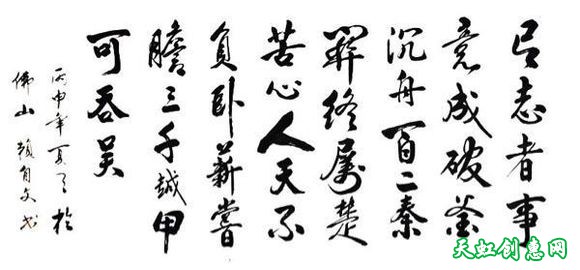 有志者事
竟成破釜
沉舟百二秦
關終屬楚
苦心人天不
負卧薪嘗
膽三千越甲
可吞吴
丙申年夏月於
佛山賴自文书
天虹创意网